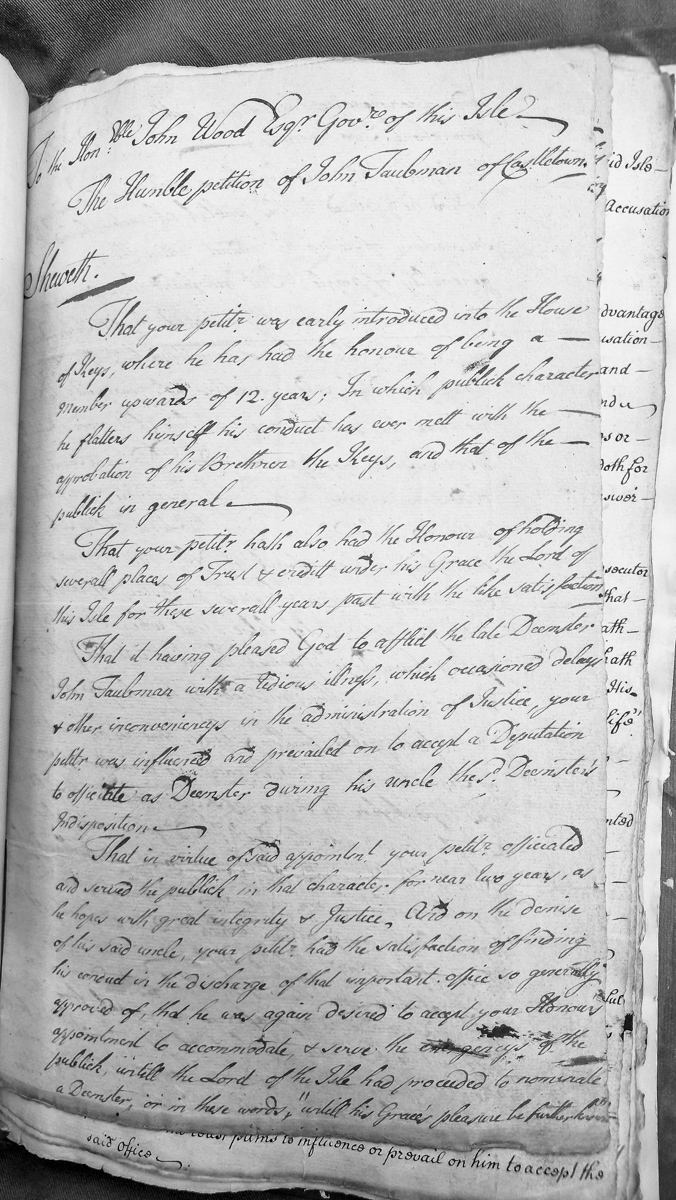 To the Hon:ble John Wood Esqr. Govre. of this Isle
The Humble petition of John Taubman of Castletown
Sheweth.
That your petitr. was early introduced into the House
of Keys, where he has had the honour of being a
member upwards of 12. years; In which publick character
he flatters himself his conduct has ever mett with the
approbation of his Brethren the Keys, and that of the
publick in general
That your petitr. hath also had the Honour of holding
severall places of Trust & creditt under his Grace the Lord of
this Isle for these severall years past with the like satisfaction
That it having pleased God to afflict the late Deemster
John Taubman with a tidious illness, which occasioned delays
& other inconveniencys in the administration of Justice, your
petitr. was influenced and prevailed on to accept a Deputation
to officitate as Deemster during his uncle the sd. Deemster's
Indisposition
That in virtue of said appointent. your petitr. officiated
and served the publick in that character for near two years, as
he hopes with great integrity & Justice, And on the demise
of his said uncle, your petitr. had the satisfaction of finding
his conduct in the discharge of that important office so generally
approved of, that he was again desired to accept your Honours
appointment to accommodate, & serve the of the
publick, untill the Lord of the Isle had proceeded to nominate
a Deemster, or in these words, "untill his Grace's pleasure be further known"
to influence or prevail on him to accept the
said Office
id Isle
Accusation
dvantage
usation
and
or
oth for
swer
secutor
that
ath
hath
His
life"
nted
But